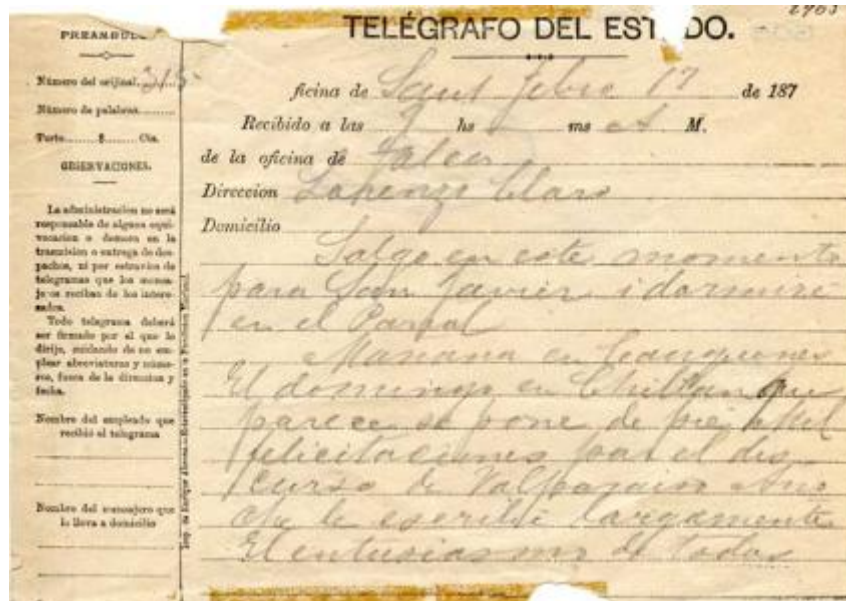 2903
TELÉGRAFO DEL EST DO.
PREAMBULO
Número del orijinal 315
Número de palabras
Parte $ Cts.
OBSERVACIONES.
La administracion no será
responsable de alguna equi-
vocacion o demora en la
trasmision o entrega de des-
pachos, ni por estravíos de
telegramas que los mensa-
jeros reciban de los intere-
sados.
Todo telegrama deberá
ser firmado por el que lo
dirije, cuidando de no em-
plear abreviaturas y núme-
ros, fuera de la direccion y
fecha.
Nombre del empleado que
recibió el telegrama
Nombre del mensajero que
lo lleva a domicilio
ficina de Sant Febre 17 de 187
Recibido a las 9 hs ms A M.
de la oficina de Talca
Direccion Lorenzo Claro
Domicilio
Salgo en este momento
para San Javier i dormiré
en el Parral
Mañana en Cauquenes
El domingo en Chillan que
parece se pone de pié Mil
felicitaciones por el dis
curso de Valparaiso Ano
che le escribí largamente
El entusiasmo de todos